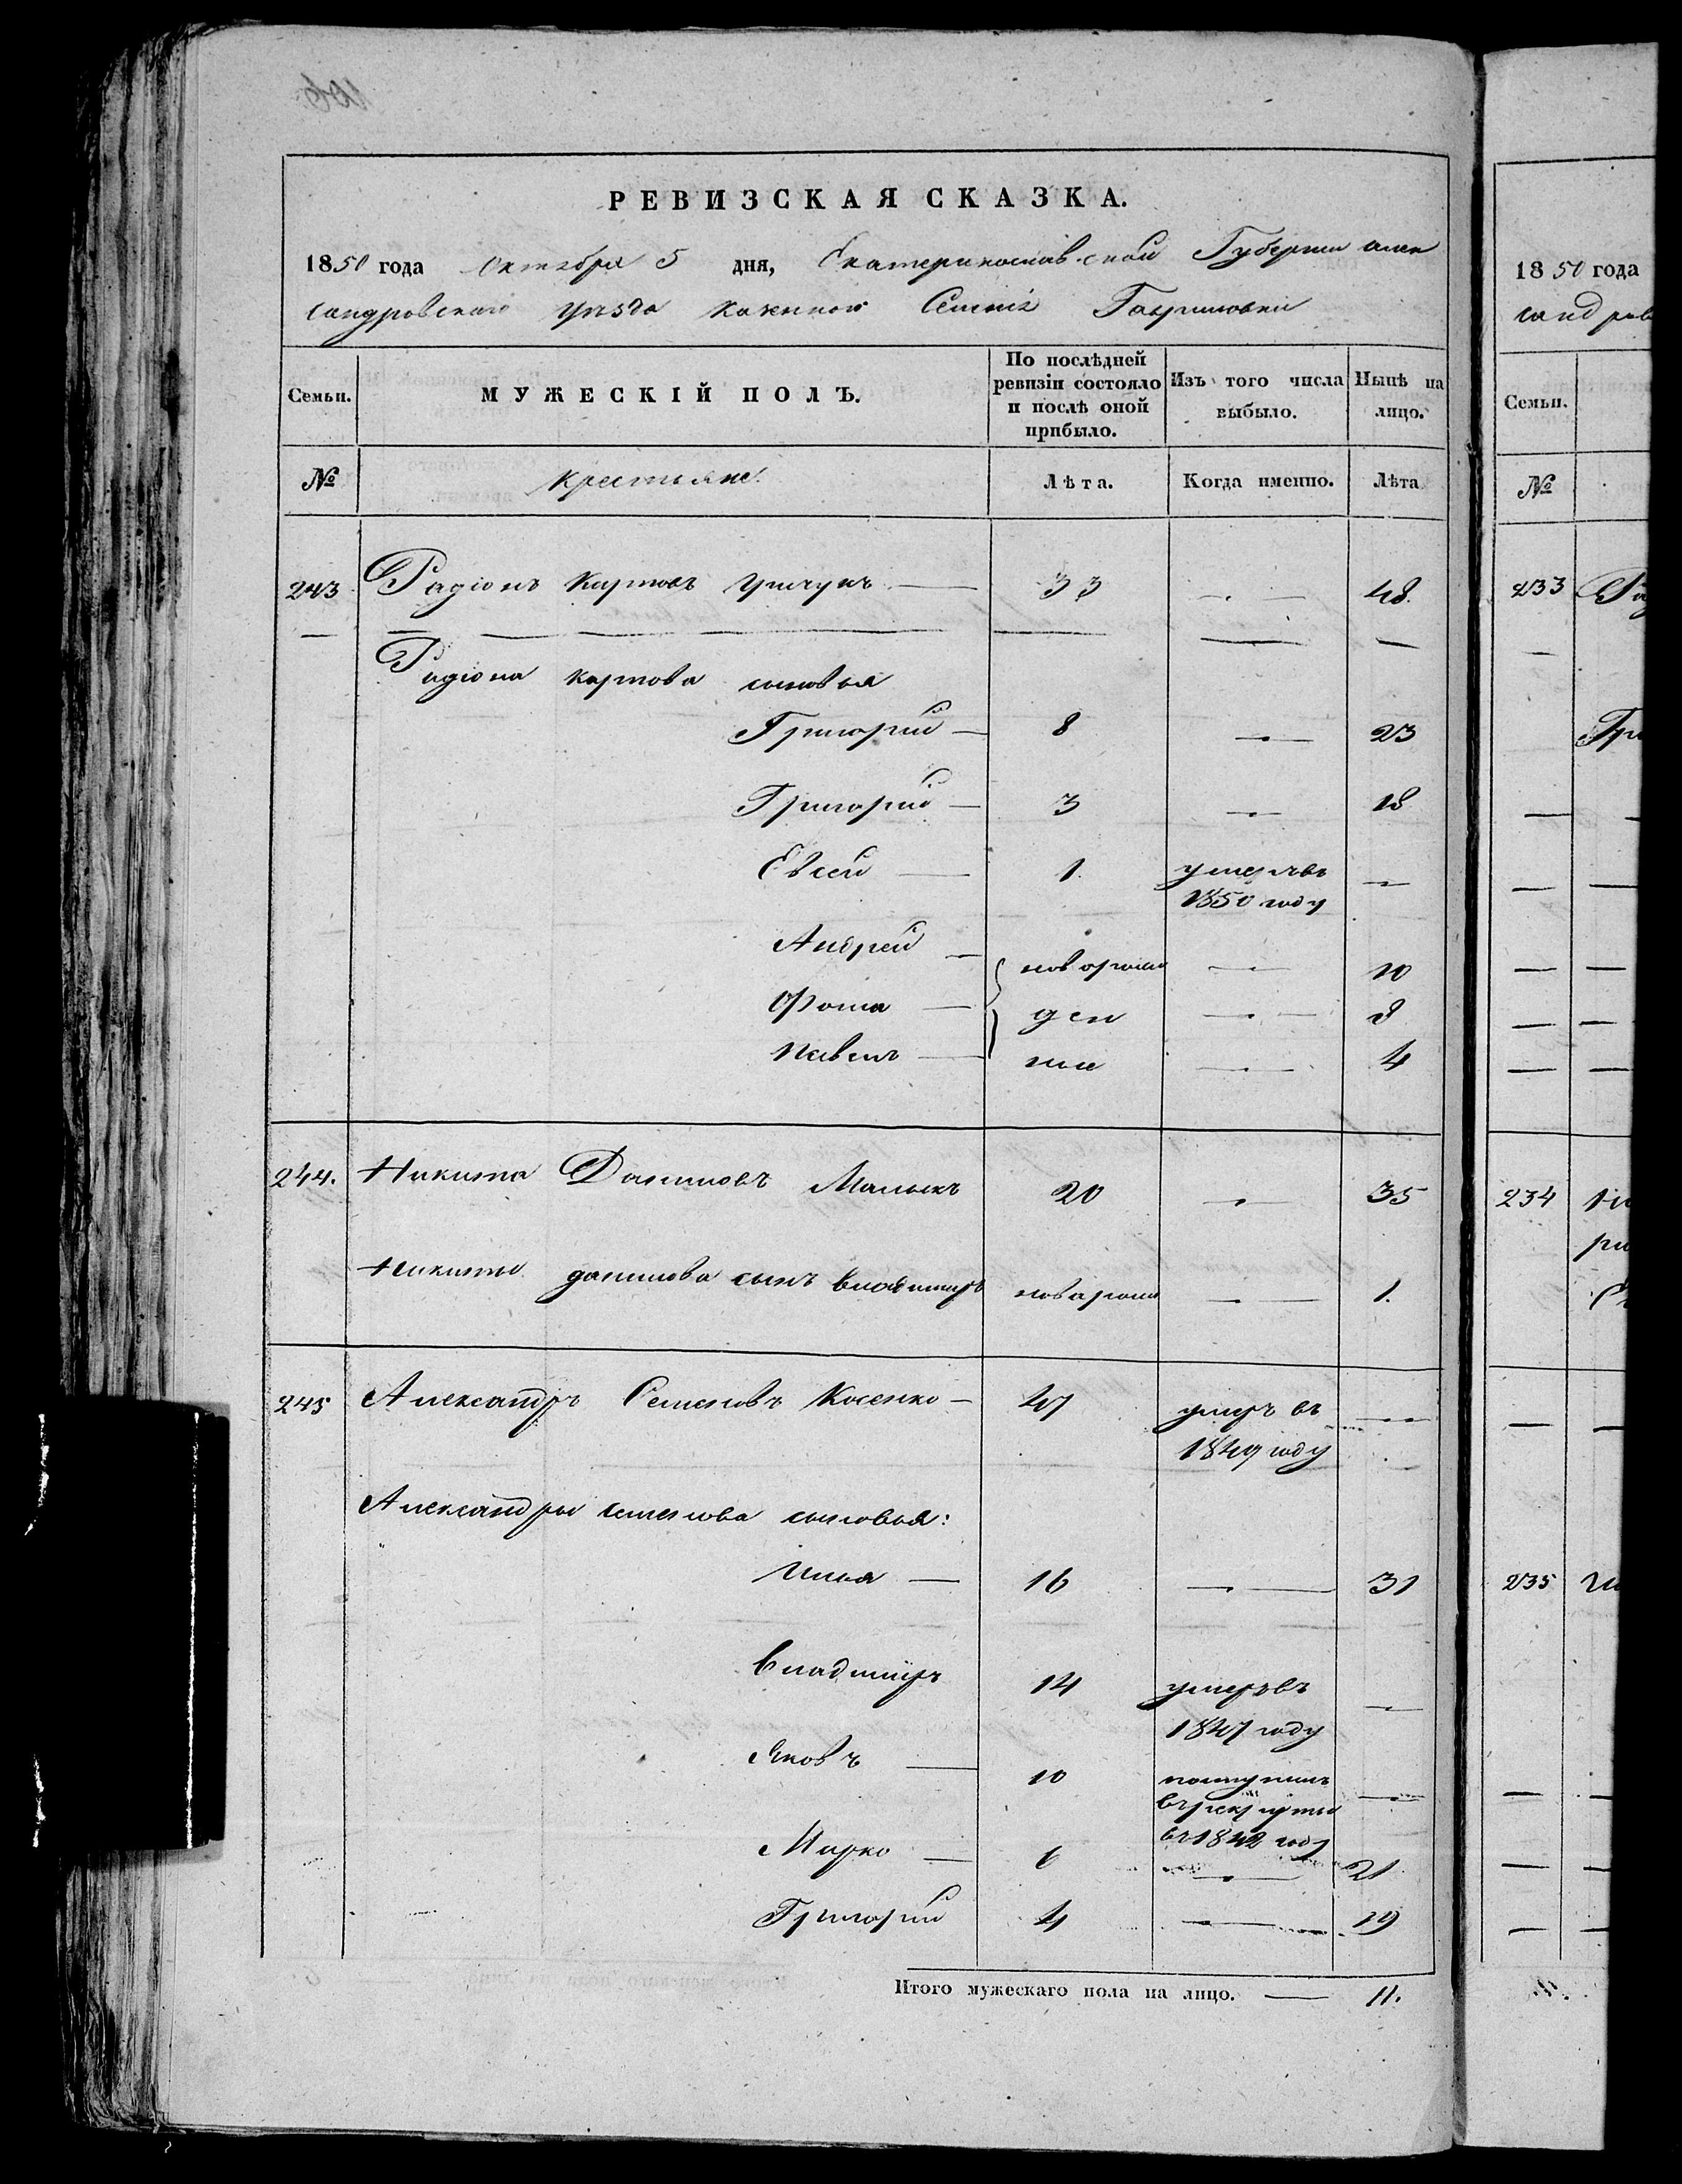 РЕВИЗСКАЯ СКАЗКА.
1850 года Октября 5 дня, Екатеринославской Губернии Алек
сандровскаго уезда казенной Гавриловки
Семьи. МУЖЕСКІЙ ПОЛЪ. По послѣдней ревизіи состояло и послѣ оной прибыло. Изъ того числа выбыло. Нынѣ на лицо.
№ Крестьяне. Лѣта. Когда именно. Лѣта
243 Радіонъ Карповъ 33 — 48.
Радіона Карпова сыновья
Григорій — 8 — 23
Григорій — 3 — 18
Евсей — 1. умеръ въ —
1850 году
Андрей — новорож — 10
Фома — ден — 8
Павелъ — ные — 4
244. Никита Даниловъ Малыкъ 20 — 35
Никиты данилова сынъ владимиръ новорож — 1.
245 Александръ Семеновъ Косенко — 47 умеръ въ —
1849 году
Александры семенова сыновья:
Илья — 16 — 31
Владиміръ 14 умеръ въ —
1847 году
Яковъ — 10 поступилъ —
въ рекруты
въ 1842 году
Марко — 6 — 21
Григорій 4 — 19
Итого мужескаго пола на лицо. — 11.
1850 года
санд
Семьи.
№
233
234
235